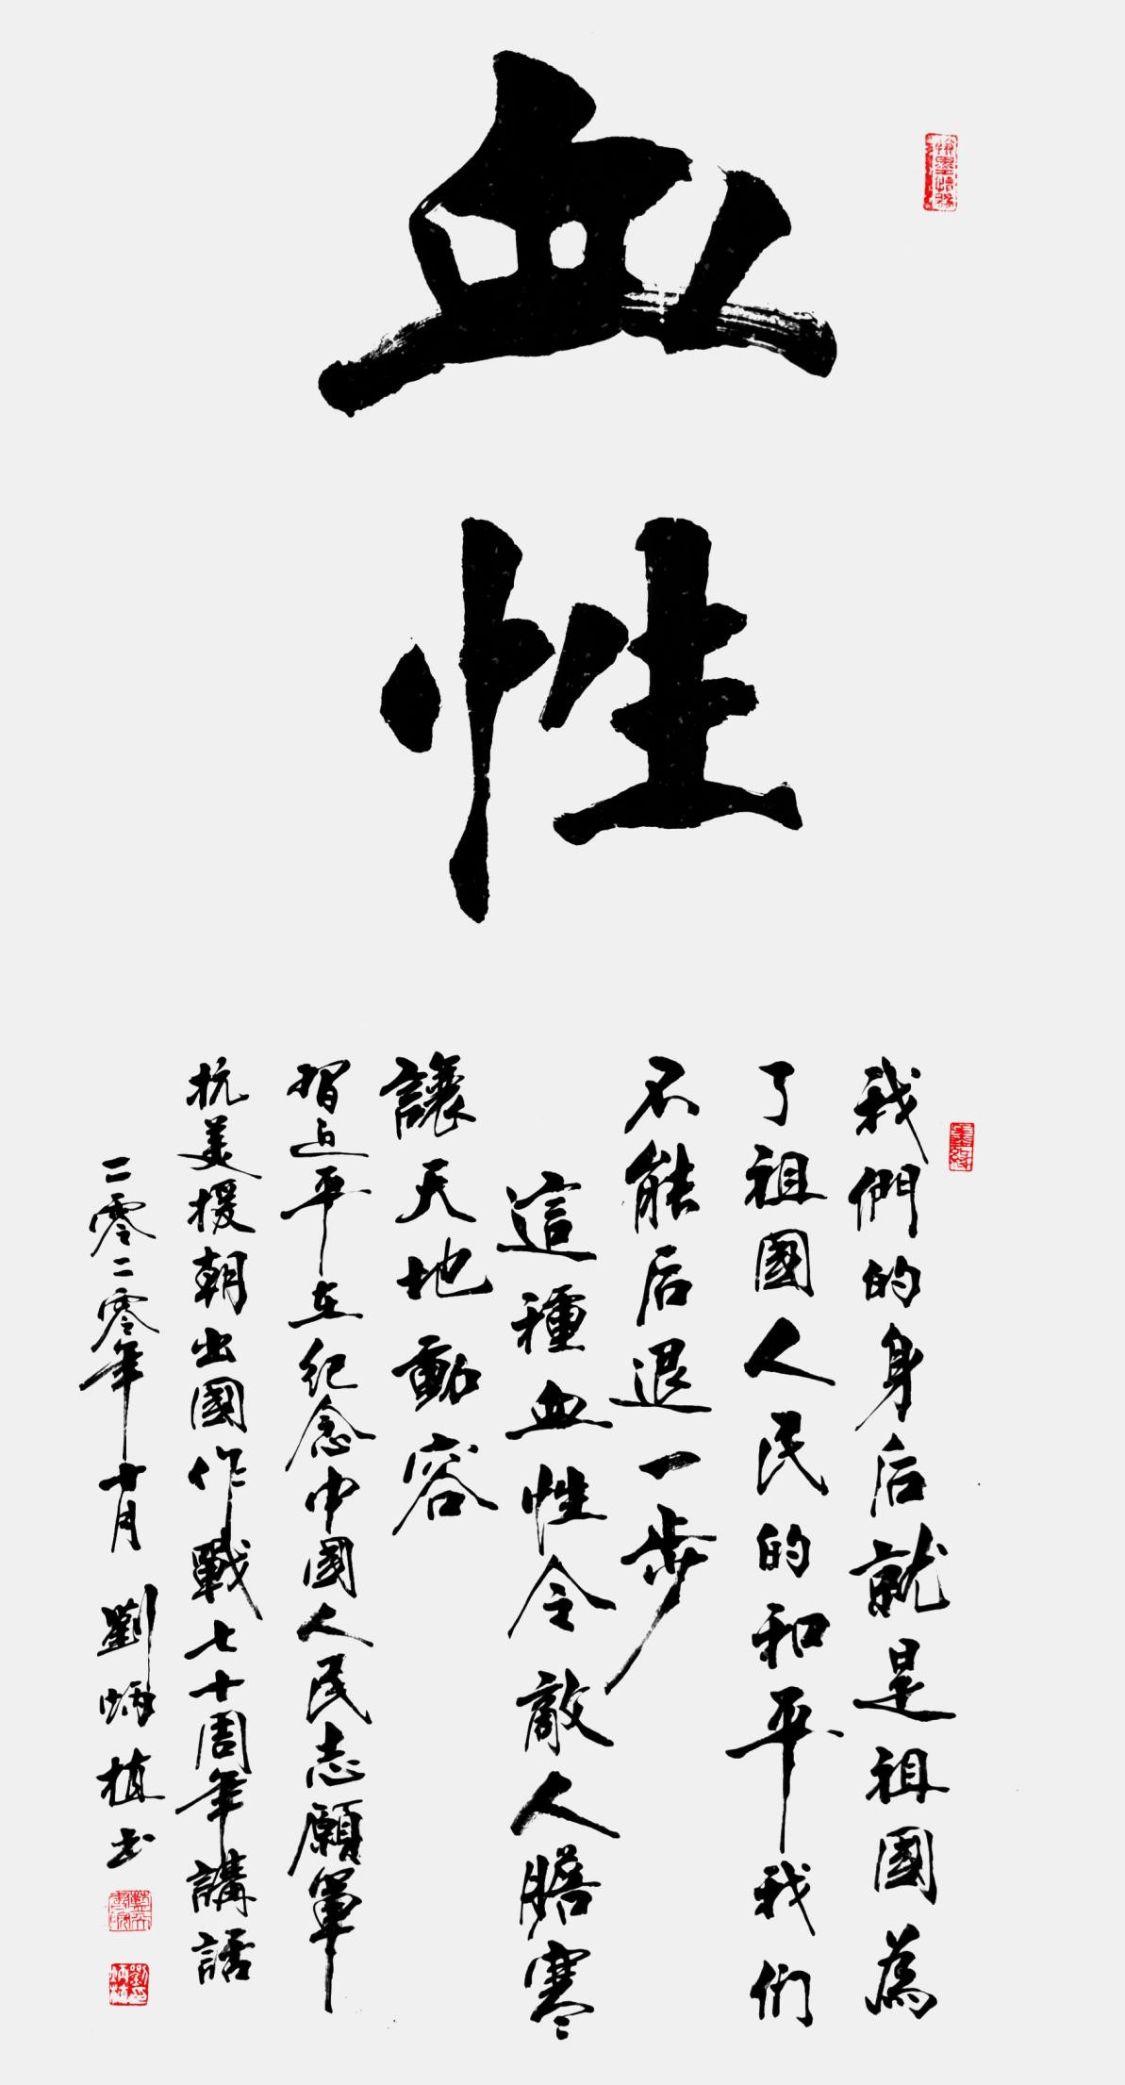 血性
我們的身后就是祖國為
了祖國人民的和平我们
不能后退一步
這種血性令敵人膽寒
讓天地動容
習近平在紀念中國人民志願軍
抗美援朝出國作戰七十周年講話
二零二零年十月 劉炳植书